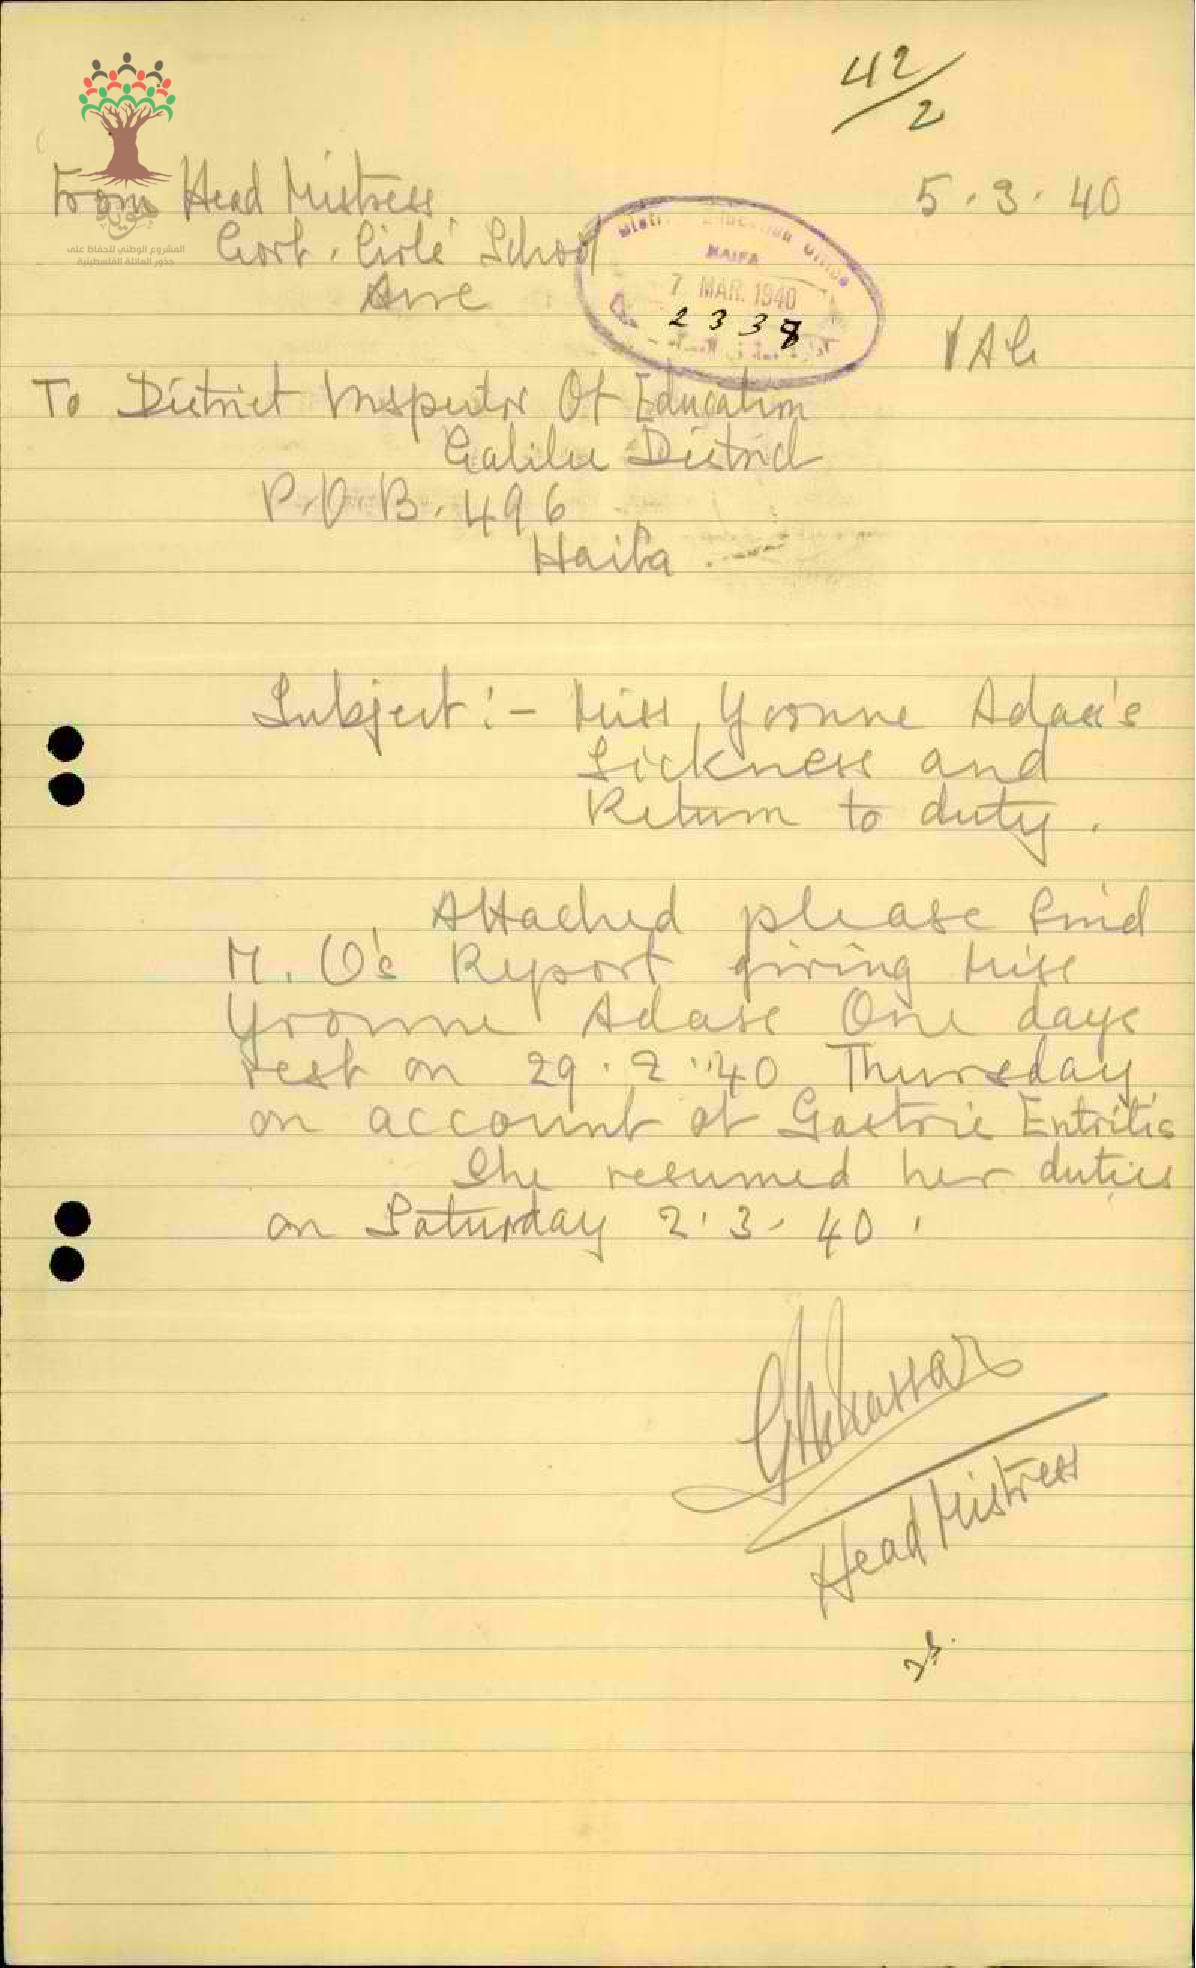 42/2
From Head Mistress
5.3.40
Govt. Girls' School
Acre
المشروع الوطني للحفاظ على
جذور العائلة الفلسطينية
District Education Office
HAIFA
7 MAR. 1940
2338
To District Inspector Of Education
Galilee District
P.O.B. 496
Haifa
Subject:- Miss Yvonne Adass's
Sickness and
Return to duty.
Attached please find
M.O's Report giving Miss
Yvonne Adass One days
rest on 29.2.40 Thursday
on account of Gastric Entritis
She resumed her duties
on Saturday 2.3.40.
Head Mistress